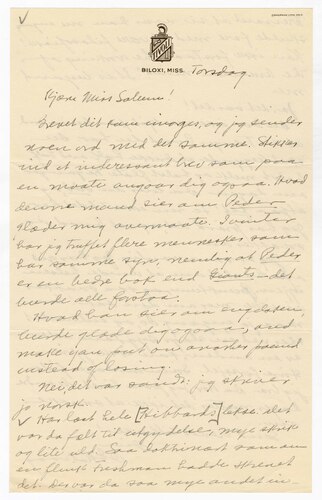 ✓
TIVOLI
BILOXI, MISS.
Torsdag.
Kjære Miss Solum!
Brevet dit kom imorges, og jeg sender
noen ord med det samme. Stikker
ind et interessant brev som paa
en maate angaar dig ogsaa. Hvad
denne mand sier om Peder
glæder mig overmaate. Ivinter
har jeg truffet flere mennesker som
har samme syn, nemlig at Peder
er en bedre bok end Giants — det
burde alle forstaa.
Hvad han sier om engelsken,
burde glæde dig ogsaa, and
make you put on another pound
instead of losing.
Nei, det var sandt: jeg skriver
jo norsk.
✓ Har læst hele [Hibbards] lekse. Det
var da fælt til utgydelse, mye skrik
og lite uld. Saa doktrinært som om
en flink freshman hadde skrevet
det. Der var da saa mye andet in-